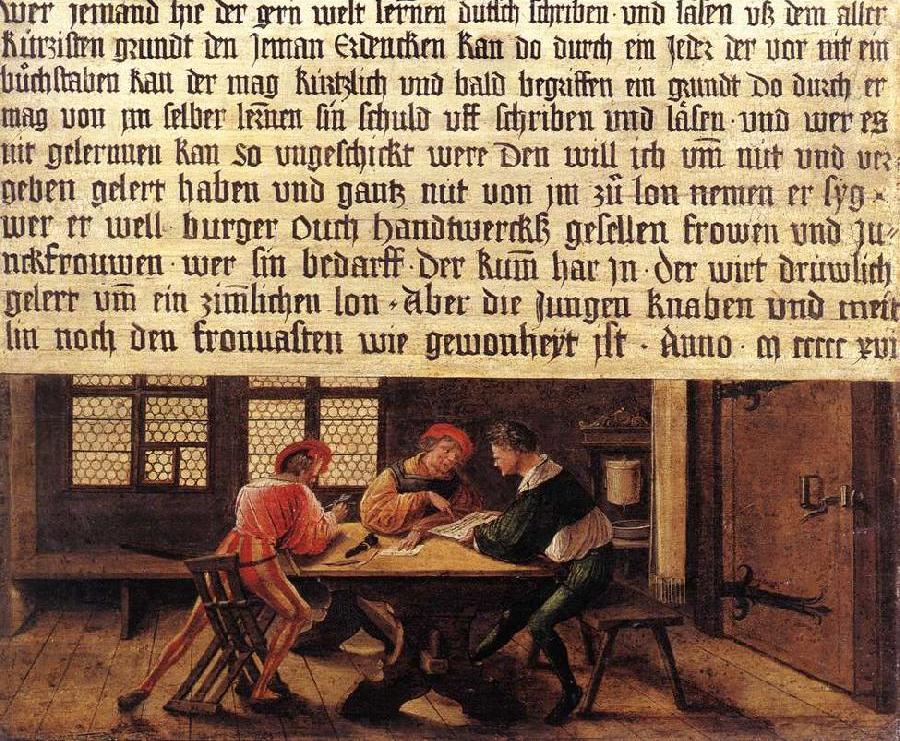 wer jemand hie der gern welt lernen dutsch schriben und läsen uß dem aller
kürzisten grundt den jeman Erdencken kan do durch ein jeder der vor nit ein
büchstaben kan der mag kürtzlich und bald begriffen ein grundt do durch er
mag von jm selber lernen sin schuld uff schriben und läsen und wer es
nit gelernnen kan so ungeschickt were Den will ich um nüt und ver-
geben gelert haben und gantz nüt von jm zů lon nemen er syg
wer er well burger Ouch handtwerckß gesellen frowen und ju-
nckfrouwen wer sin bedarff Der kum har jn der wirt drüwlich
gelert um ein zimlichen lon Aber die jungen knaben und meit
lin noch den fronuasten wie gewonheyt ist Anno m ccccc xvi